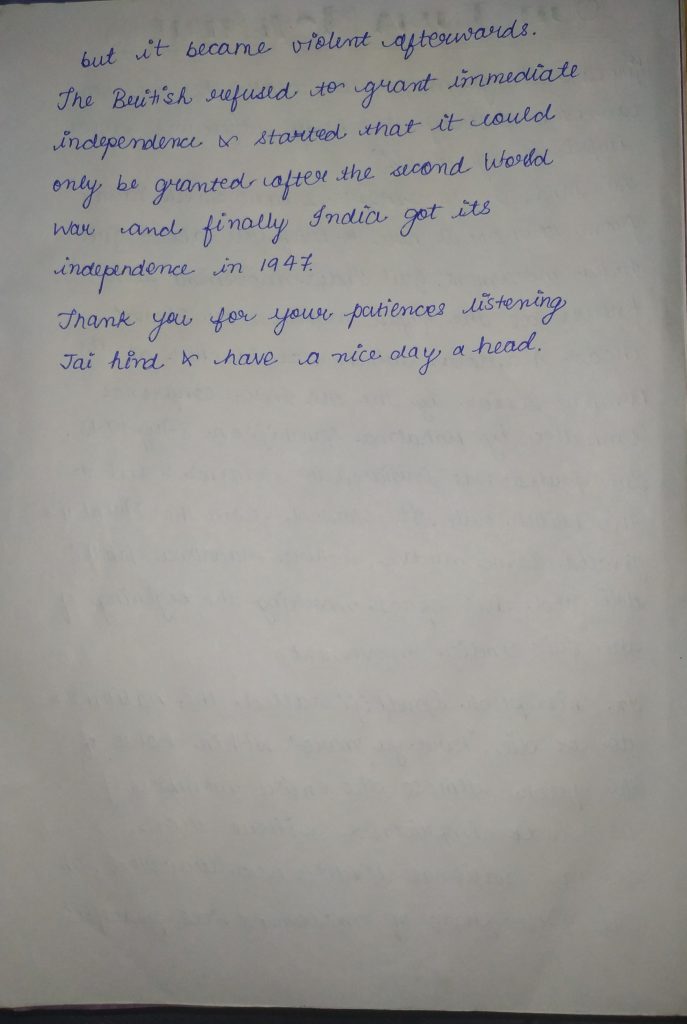 but it became violent afterwards.
The British refused to grant immediate
independence & started that it could
only be granted after the second World
War and finally India got its
independence in 1947.
Thank you for your patiences listening
Jai hind & have a nice day a head.